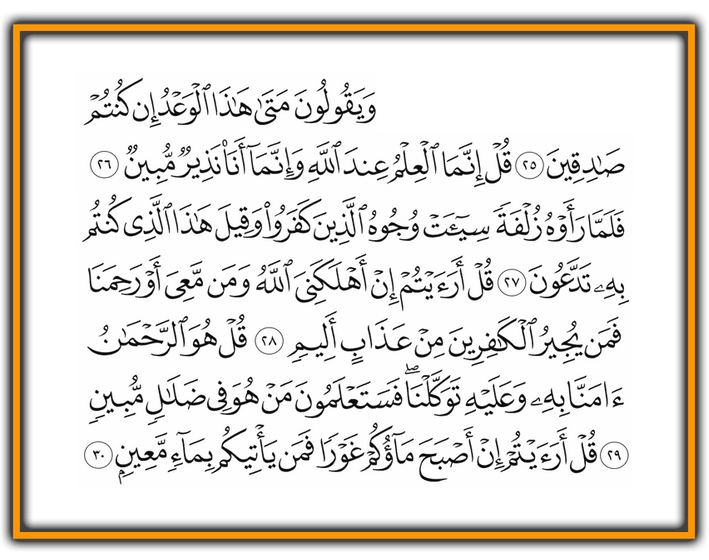 وَيَقُولُونَ مَتَىٰ هَـٰذَا ٱلْوَعْدُ إِن كُنتُمْ
صَـٰدِقِينَ ٢٥ قُلْ إِنَّمَا ٱلْعِلْمُ عِندَ ٱللَّهِ وَإِنَّمَآ أَنَا۠ نَذِيرٌ مُّبِينٌ ٢٦
فَلَمَّا رَأَوْهُ زُلْفَةً سِيٓـَٔتْ وُجُوهُ ٱلَّذِينَ كَفَرُوا۟ وَقِيلَ هَـٰذَا ٱلَّذِى كُنتُم
بِهِۦ تَدَّعُونَ ٢٧ قُلْ أَرَءَيْتُمْ إِنْ أَهْلَكَنِىَ ٱللَّهُ وَمَن مَّعِىَ أَوْ رَحِمَنَا
فَمَن يُجِيرُ ٱلْكَـٰفِرِينَ مِنْ عَذَابٍ أَلِيمٍ ٢٨ قُلْ هُوَ ٱلرَّحْمَـٰنُ
ءَامَنَّا بِهِۦ وَعَلَيْهِ تَوَكَّلْنَا ۖ فَسَتَعْلَمُونَ مَنْ هُوَ فِى ضَلَـٰلٍ مُّبِينٍ
٢٩ قُلْ أَرَءَيْتُمْ إِنْ أَصْبَحَ مَآؤُكُمْ غَوْرًا فَمَن يَأْتِيكُم بِمَآءٍ مَّعِينٍ ٣٠